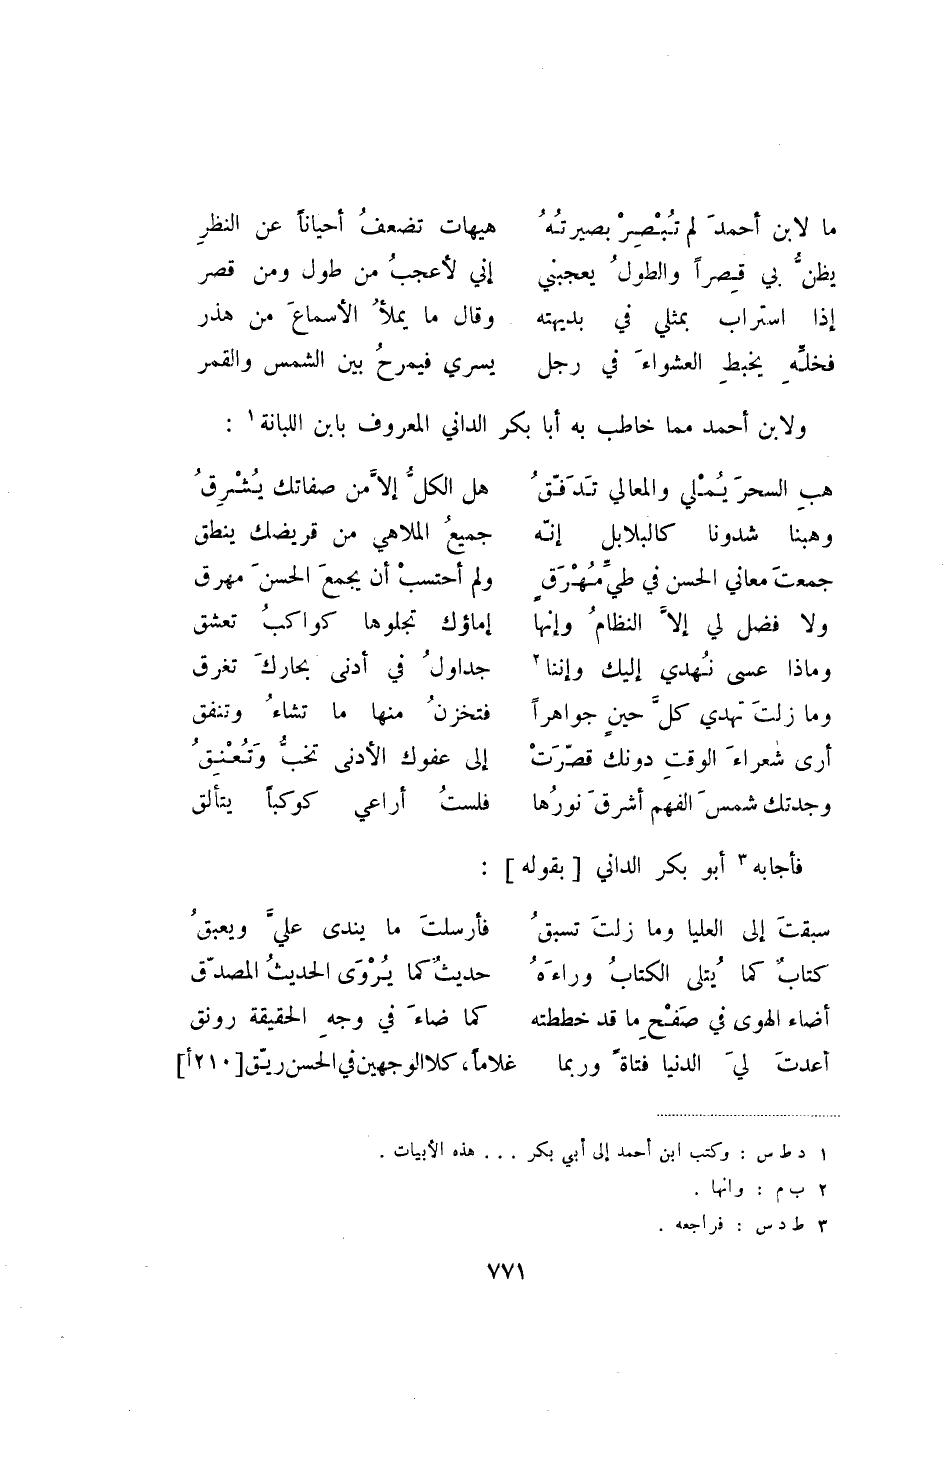 ما لابن أحمدَ لم تُبْصِرْ بصيرتُهُ هيهات تضعفُ أحياناً عن النظرِ
يظنُّ بي قِصراً والطولُ يعجبني إني لأعجبُ من طول ومن قصر
إذا استراب بمثلي في بديهته وقال ما يملأُ الأسماعَ من هذر
فخلِّهِ يخبطِ العشواءَ في رجل يسري فيمرحُ بين الشمس والقمر
ولابن أحمد مما خاطب به أبا بكر الداني المعروف بابن اللبانة١ :
هبِ السحرَ يُمْلي والمعالي تَدَفّقُ هل الكلُّ إلاَّ من صفاتك يُشْرِقُ
وهبنا شدونا كالبلابل إنّه جميعُ الملاهي من قريضك ينطق
جمعتَ معاني الحسن في طيِّ مُهْرَقٍ ولم أحتسبْ أن يجمعَ الحسنَ مهرق
ولا فضل لي إلاَّ النظامُ وإنها إماؤك تجلوها كواكبُ تعشق
وماذا عسى نُهدي إليك وإننا٢ جداولُ في أدنى بحاركَ تغرق
وما زلتَ تهدي كلَّ حينٍ جواهراً فتخزنُ منها ما تشاءُ وتنفق
أرى شعراءَ الوقتِ دونك قصّرَتْ إلى عفوك الأدنى تخبُّ وَتُعْنِقُ
وجدتك شمسَ الفهم أشرقَ نورُها فلستُ أراعي كوكباً يتألق
فأجابه٣ أبو بكر الداني [ بقوله ] :
سبقتَ إلى العليا وما زلتَ تسبقُ فأرسلتَ ما يندى عليَّ ويعبقُ
كتابٌ كما يُتلى الكتابُ وراءَهُ حديثٌ كما يُرْوَى الحديثُ المصدّق
أضاء الهوى في صَفْحِ ما قد خططته كما ضاءَ في وجهِ الحقيقة رونق
أعدتَ ليَ الدنيا فتاةً وربما غلاماً، كلا الوجهين في الحسن ريّق [٢١٠أ]
١ د ط س : وكتب ابن أحمد إلى أبي بكر . . . هذه الأبيات .
٢ ب م : وانها .
٣ ط د س : فراجعه .
٧٧١